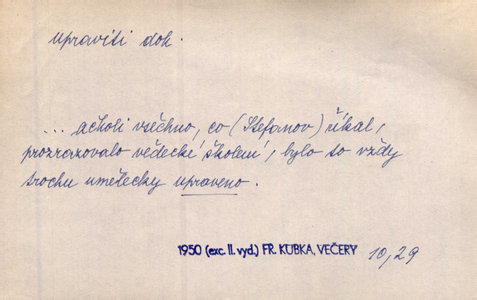 upraviti dok.
... ačkoli vsěchno, co (Stefanov) říkal,
prozrazovalo vědecké školení, bylo to vždy
trochu umělecky upraveno.
1950 (exc. II. vyd.) FR. KUBKA, VEČERY 10,29